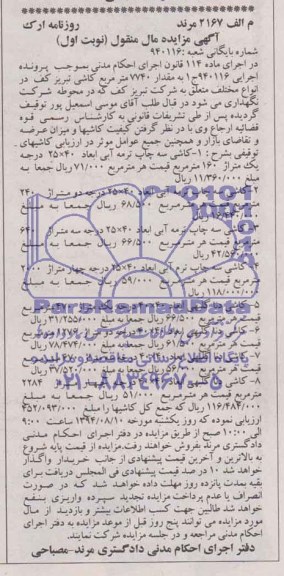 م الف ۲۱۶۷ مرند روزنامه ارک
آگهی مزایده مال منقول (نوبت اول)
شماره بایگانی شعبه: ۹۴۰۱۱۶
در اجرای ماده ۱۱۴ قانون اجرای احکام مدنی بموجب پرونده
اجرایی ۹۴۰۱۱۶ح۱ به مقدار ۷۷۴۰ متر مربع کاشی تبریز کف در
انواع مختلف متعلق به شرکت تبریز کف که در محوطه شرکت
نگهداری می شود در قبال طلب آقای موسی اسمعیل پور توقیف
گردیده پس از طی تشریفات قانونی به کارشناس رسمی قوه
قضائیه ارجاع وی با در نظر گرفتن کیفیت کاشیها و میزان عرضه
و تقاضای بازار و همچنین جمیع عوامل موثر در ارزیابی کاشیهای
توقیفی بشرح : ۱-کاشی سه چاپ ترمه آبی ابعاد ۴۰×۲۵ درجه
یک متراژ ۱۶۰ مترمربع قیمت هر مترمربع ۷۱/۰۰۰ ریال جمعا به
مبلغ ۱۱/۳۶۰/۰۰۰ ریال
۲-کاشی سه چاپ ترمه آبی ابعاد ۴۰×۲۵ درجه دو متراژ ۲۴۰
مترمربع قیمت هر مترمربع ۶۸/۵۰۰ ریال جمعا به مبلغ
کاشی سه چاپ ترمه آبی ابعاد ۴۰×۲۵ درجه سه متراژ ۶۴۰
مترمربع قیمت هر مترمربع ۶۶/۵۰۰ ریال جمعا به مبلغ
۴۲/۵۶۰/۰۰۰
۴-کاشی سه چاپ ترمه آبی ابعاد ۴۰×۲۵ درجه چهار متراژ ۲۰۰۰
مترمربع قیمت هر مترمربع ۵۹/۰۰۰ ریال جمعا به مبلغ
۱۱۸/۰۰۰/۰۰۰
۵-کاشی
قیمت هر مترمربع ۶۶/۵۰۰ ریال جمعا به مبلغ ۳۱/۲۵۵/۰۰۰ ریال
۶- کاشی
مترمربع ۶۱/۵۰۰ ریال جمعا به مبلغ ۷۸/۴۷۴/۰۰۰ ریال
۷- کاشی
قیمت هر مترمربع ۵۶/۰۰۰ ریال جمعا به مبلغ ۳۷/۵۲۰/۰۰۰ ریال
۸- کاشی متراژ ۲۲۸۴
مترمربع قیمت هر مترمربع ۵۱/۰۰۰ ریال جمعا به مبلغ
۱۱۶/۴۸۴/۰۰۰ ریال که جمع کل کاشیها را مبلغ ۴۵۲/۰۹۳/۰۰۰
ارزیابی نموده که روز یکشنبه مورخه ۱۳۹۴/۰۸/۱۰ ساعت ۹:۰۰
الی ۱۰:۰۰ صبح از طریق مزایده در دفتر اجرای احکام مدنی
دادگستری مرند بفروش خواهند رفت.مزایده از قیمت پایه شروع
به بالاترین و آخرین قیمت پیشنهادی از جانب خریدار واگذار
خواهد شد ۱۰ در صد قیمت پیشنهادی فی المجلس دریافت برای
بقیه بمدت پانزده روز مهلت داده خواهد شد که در صورت
انصراف یا عدم پرداخت مزایده تجدید سپرده واریزی بنفع
خواهد شد طالبین جهت کسب اطلاعات بیشتر و بازدید از مال
مورد مزایده می توانند پنج روز قبل از موعد مزایده به دفتر اجرای
احکام مدنی مراجعه و در جلسه مزایده شرکت نمایند.
دفتر اجرای احکام مدنی دادگستری مرند-مصباحی
ParsNamadData
پایگاه اطلاع رسانی مناقصه و مزایده
۰۲۱-۸۸۳۴۹۶۷۰-۵